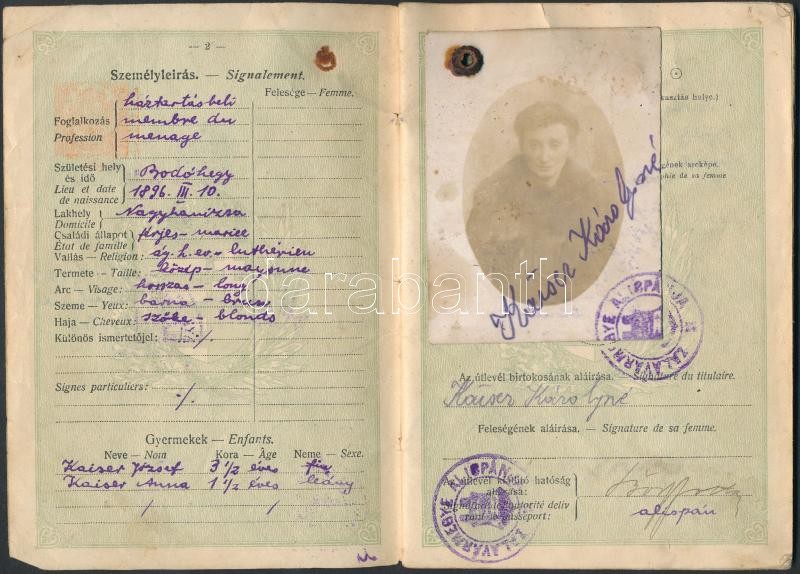 — 2 —
Személyleirás. — Signalement.
Felesége — Femme.
háztartásbeli
Foglalkozás membre du
Profession menage
Születési hely és idő Bodóhegy
Lieu et date de naissance: 1896. III. 10.
Lakhely Nagykanizsa
Domicile
Családi állapot férjes – mariee
État de famille
Vallás — Religion: ág. h. ev. – luthérien
Termete — Taille: közép – mayenne
Arc — Visage: hosszas – long
Szeme — Yeux: barna – brun
Haja — Cheveux: szőke – blonds
Különös ismertetőjel: ./.
Signes particuliers: ./.
Gyermekek — Enfants.
Neve — Nom Kora — Âge Neme — Sexe.
Kaiser József 3 1/2 éves fiu
Kaiser Anna 1 1/2 éves leány
darabanth
kasztás helye.)
gének arcképe.
phie de sa femme
Kaiser Károlyné
ZALAVÁRMEGYE ALISPÁNJA
Az útlevél birtokosának aláirása. — Signature du titulaire.
Kaiser Károlyné
Feleségének aláirása. — Signature de sa femme.
ZALAVÁRMEGYE ALISPÁN
útlevél kiállító hatóság
aláirása:
Signature de l'autorité déliv
rant le passeport:
alispán